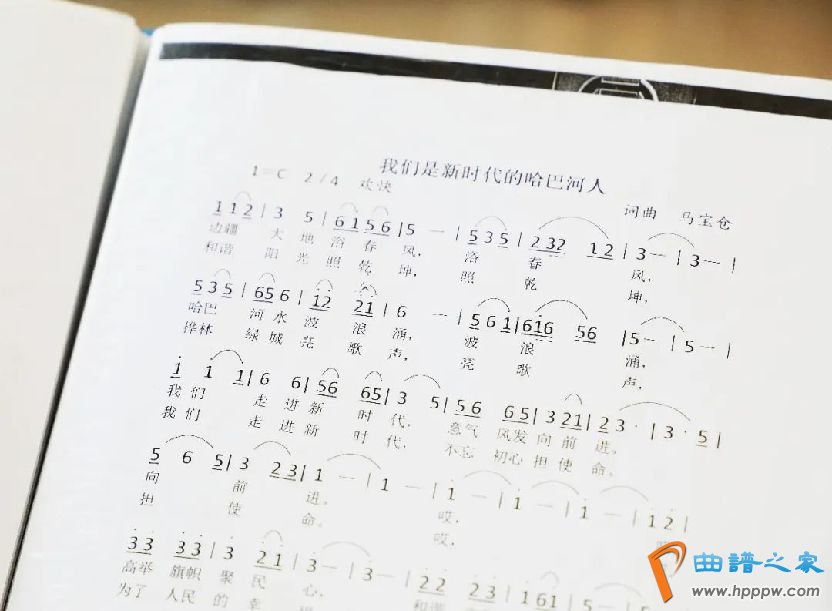 我们是新时代的哈巴河人
1=C 2/4 欢快
词曲 马宝仓
1 1 2 | 3 5 | 6 1 5 6 | 5 — | 5 3 5 | 2 3 2 1 2 | 3 — | 3 — |
边疆 大 地 浴 春 风, 浴 春 风,
和谐 阳 光 照 乾 坤, 照 乾 坤,
5 3 5 | 6 5 6 | 1 2 2 1 | 6 — | 5 6 1 | 6 1 6 5 6 | 5 — | 5 — |
哈巴 河 水 波 浪 涌, 波 浪 涌,
桦林 绿 城 亮 歌 声, 亮 歌 声,
1 1 1 | 6 6 | 5 6 6 5 | 3 5 | 5 6 6 5 | 3 2 1 | 2 3 · | 3 · 5 |
我 们 走 进 新 时 代, 意气 风发 向 前 进,
我 们 走 进 新 时 代, 不忘 初心 担 使 命,
5 6 5 | 3 2 3 | 1 — | 1 — | 1 — | 1 — | 1 — | 1 2 |
向 前 进, 哎,
担 使 命, 哎,
3 3 3 3 | 3 2 1 | 3 — | 3 — | 2 2 2 3 | 1 6 1
高举 旗帜 聚 民 心, 和谐
为了 人民 的
曲谱之家
www.hpppw.com